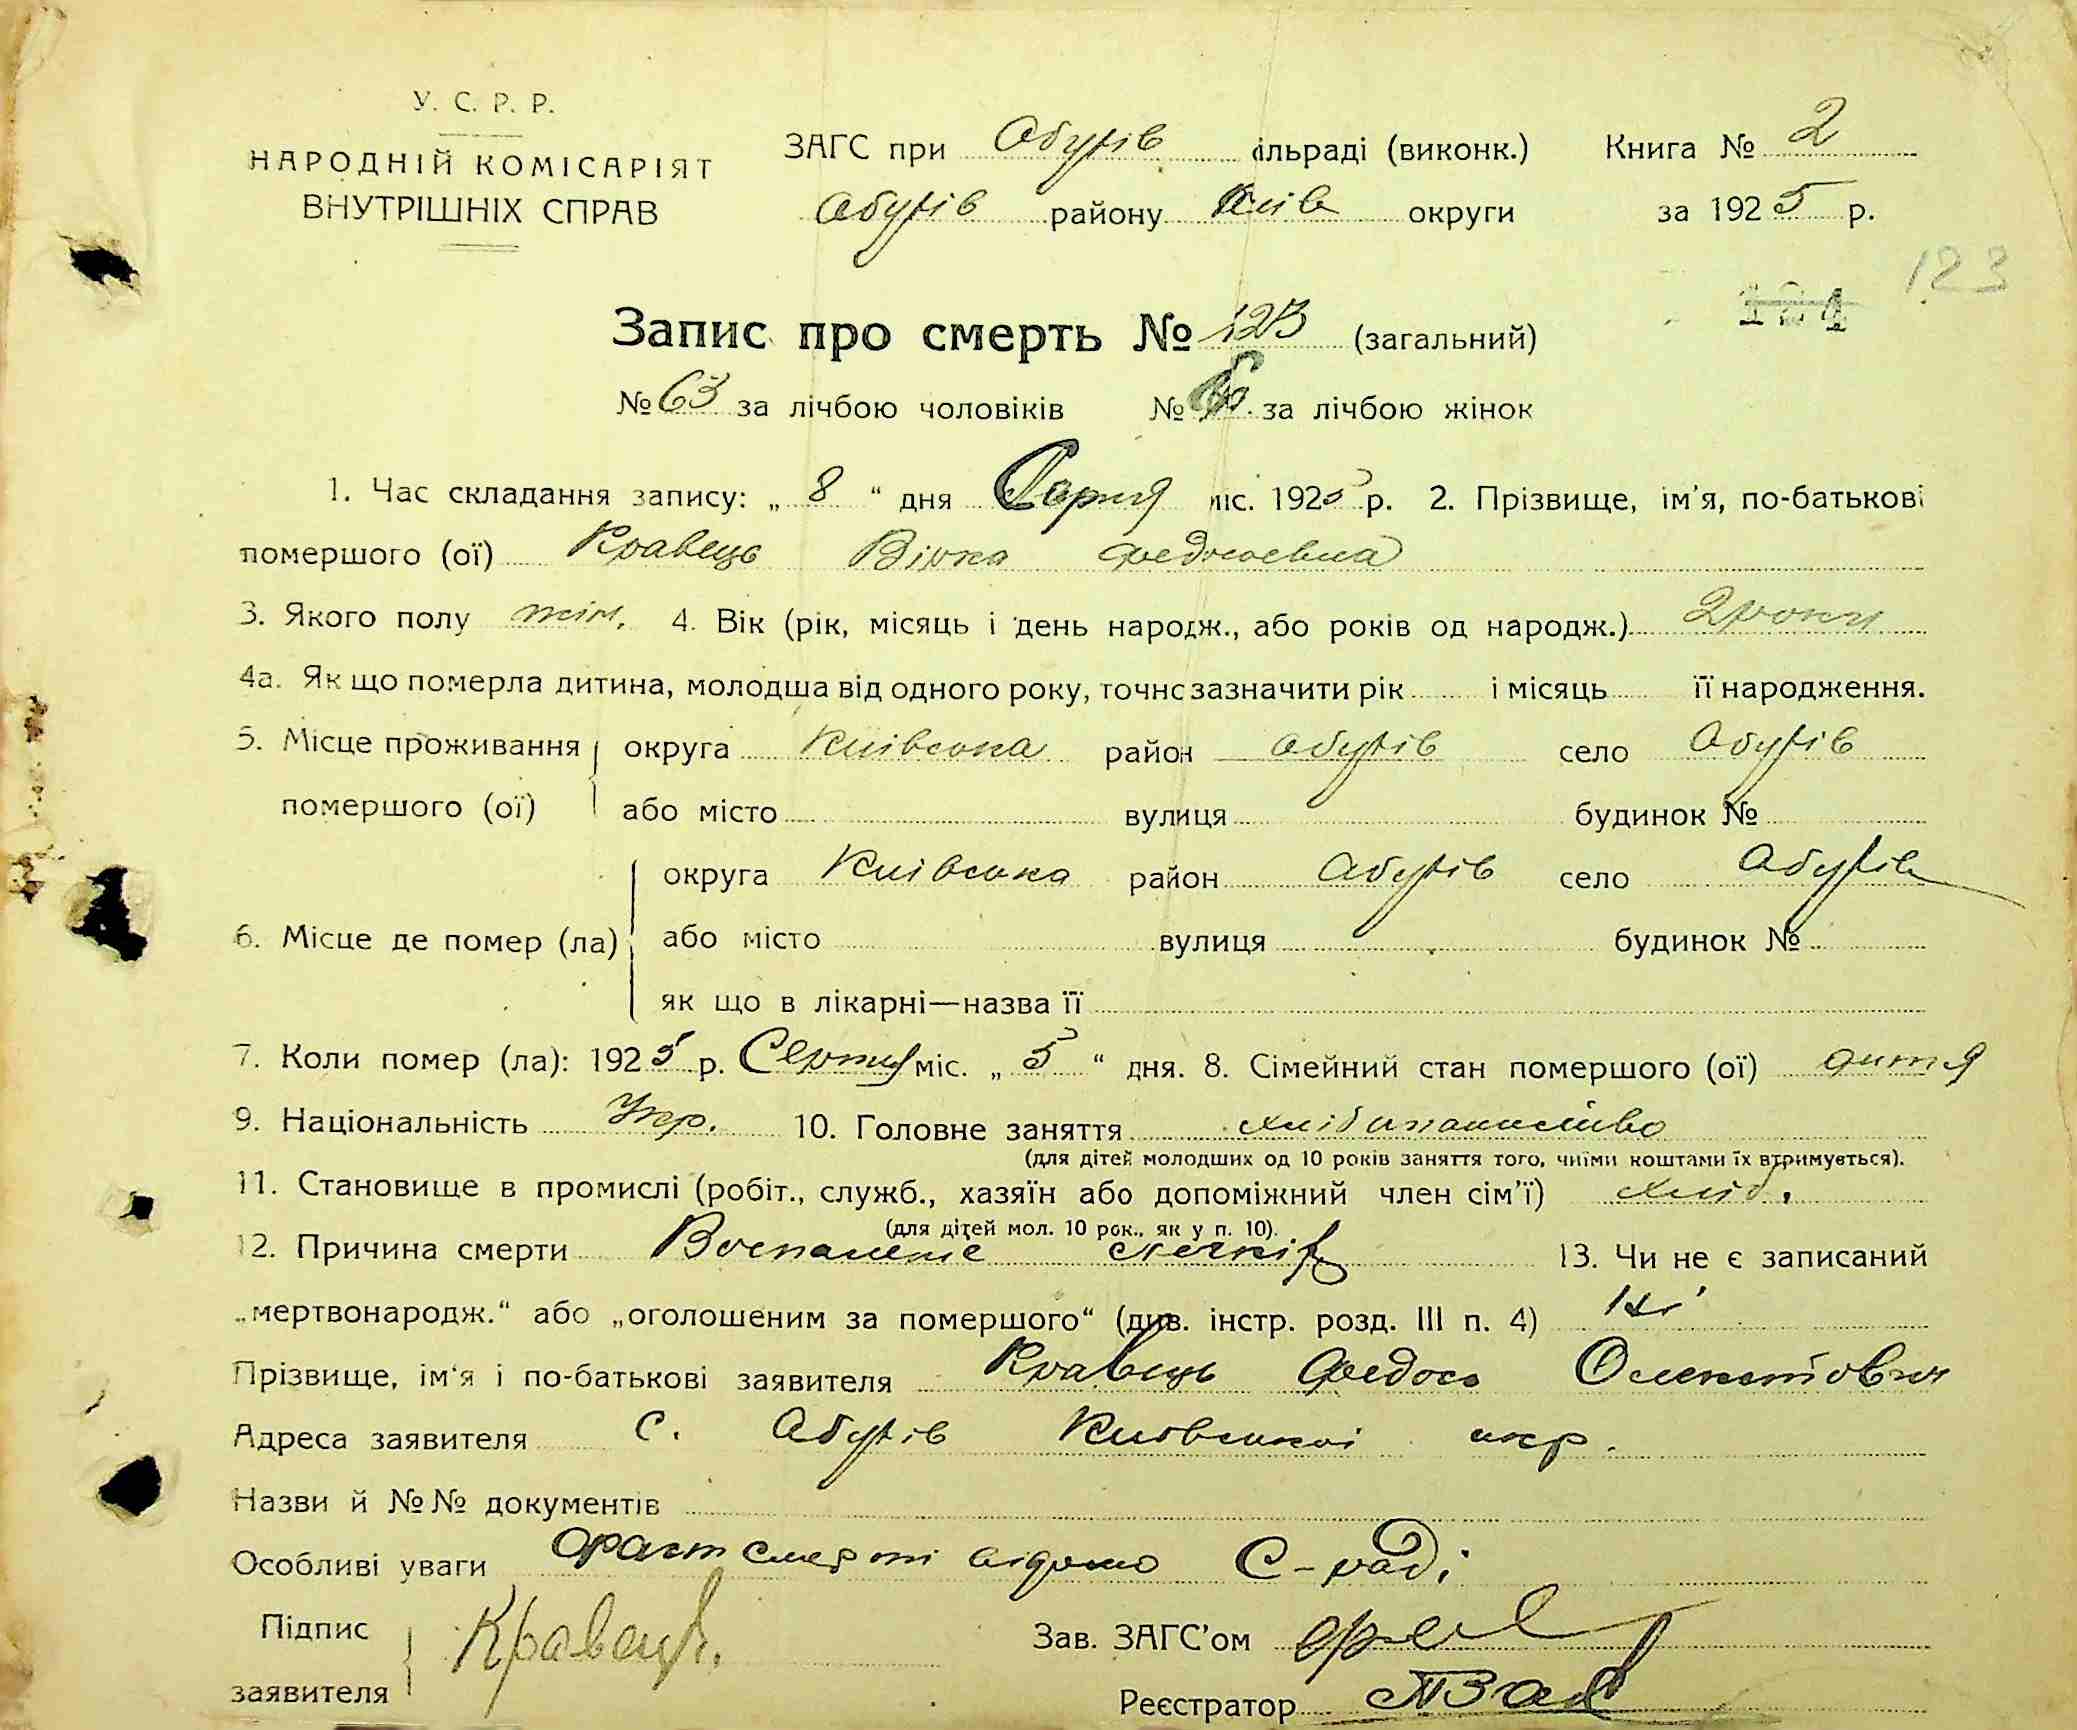 У. С. Р. Р.
НАРОДНІЙ КОМІСАРІЯТ
ВНУТРІШНІХ СПРАВ
ЗАГС при Обухів ільраді (виконк.) Книга № 2
Обухів району Київ округи за 1925 р.
123
124
Запис про смерть № 123 (загальний)
№ 63 за лічбою чоловіків № за лічбою жінок
1. Час складання запису: „ 8 “ дня Серпня міс. 1925 р. 2. Прізвище, ім'я, по-батькові
помершого (ої) Кравець Вірка Федосоевна
3. Якого полу жін. 4. Вік (рік, місяць і день народж., або років од народж.) 2 роки
4а. Як що померла дитина, молодша від одного року, точно зазначити рік і місяць її народження.
5. Місце проживання округа Київська район Обухів село Обухів
помершого (ої) або місто вулиця будинок №
округа Київська район Обухів село Обухів
6. Місце де помер (ла) або місто вулиця будинок №
як що в лікарні—назва її
7. Коли помер (ла): 1925 р. Серпня міс. „ 5 “ дня. 8. Сімейний стан помершого (ої) дитя
9. Національність Укр. 10. Головне заняття
(для дітей молодших од 10 років заняття того, чиїми коштами їх втримується).
11. Становище в промислі (робіт., служб., хазяїн або допоміжний член сім'ї) хліб.
(для дітей мол. 10 рок., як у п. 10).
12. Причина смерти Воспаление 13. Чи не є записаний
„мертвонародж.“ або „оголошеним за помершого“ (див. інстр. розд. III п. 4) Ні
Прізвище, ім'я і по-батькові заявителя Кравець Федось
Адреса заявителя с. Обухів Київської окр.
Назви й №№ документів
Особливі уваги Факт смерти відомо С-раді
Підпис Кравець
заявителя
Зав. ЗАГС'ом
Реєстратор